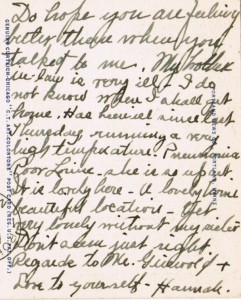 Do hope you are feeling
better than when you
talked to me. My brother
in law is very ill. I do
not know when I shall get
home. Has been in since last
Thursday running a very
high temperature. Pneumonia
Poor Louise - she is so upset.
It is lovely here - A lovely home
beautiful location - Yet
very lonely without my sister
Dont seem just right
Regards to Mr. Griswold +
Love to yourself - Hannah.
GENUINE CURTEICH-CHICAGO "C.T. ART-COLORTONE" POST CARD (REG. U.S. PAT. OFF.)